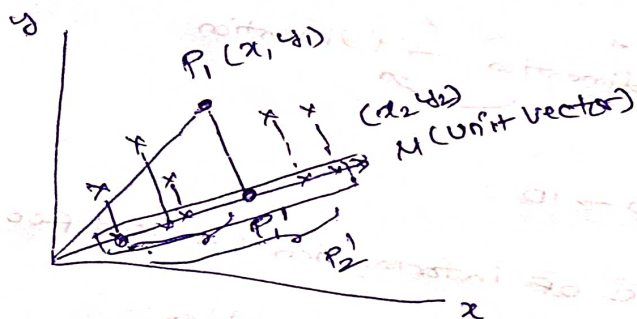 y
P₁ (x₁ y₁)
(x₂ y₂)
M (Unit vector)
P₁'
P₂'
x